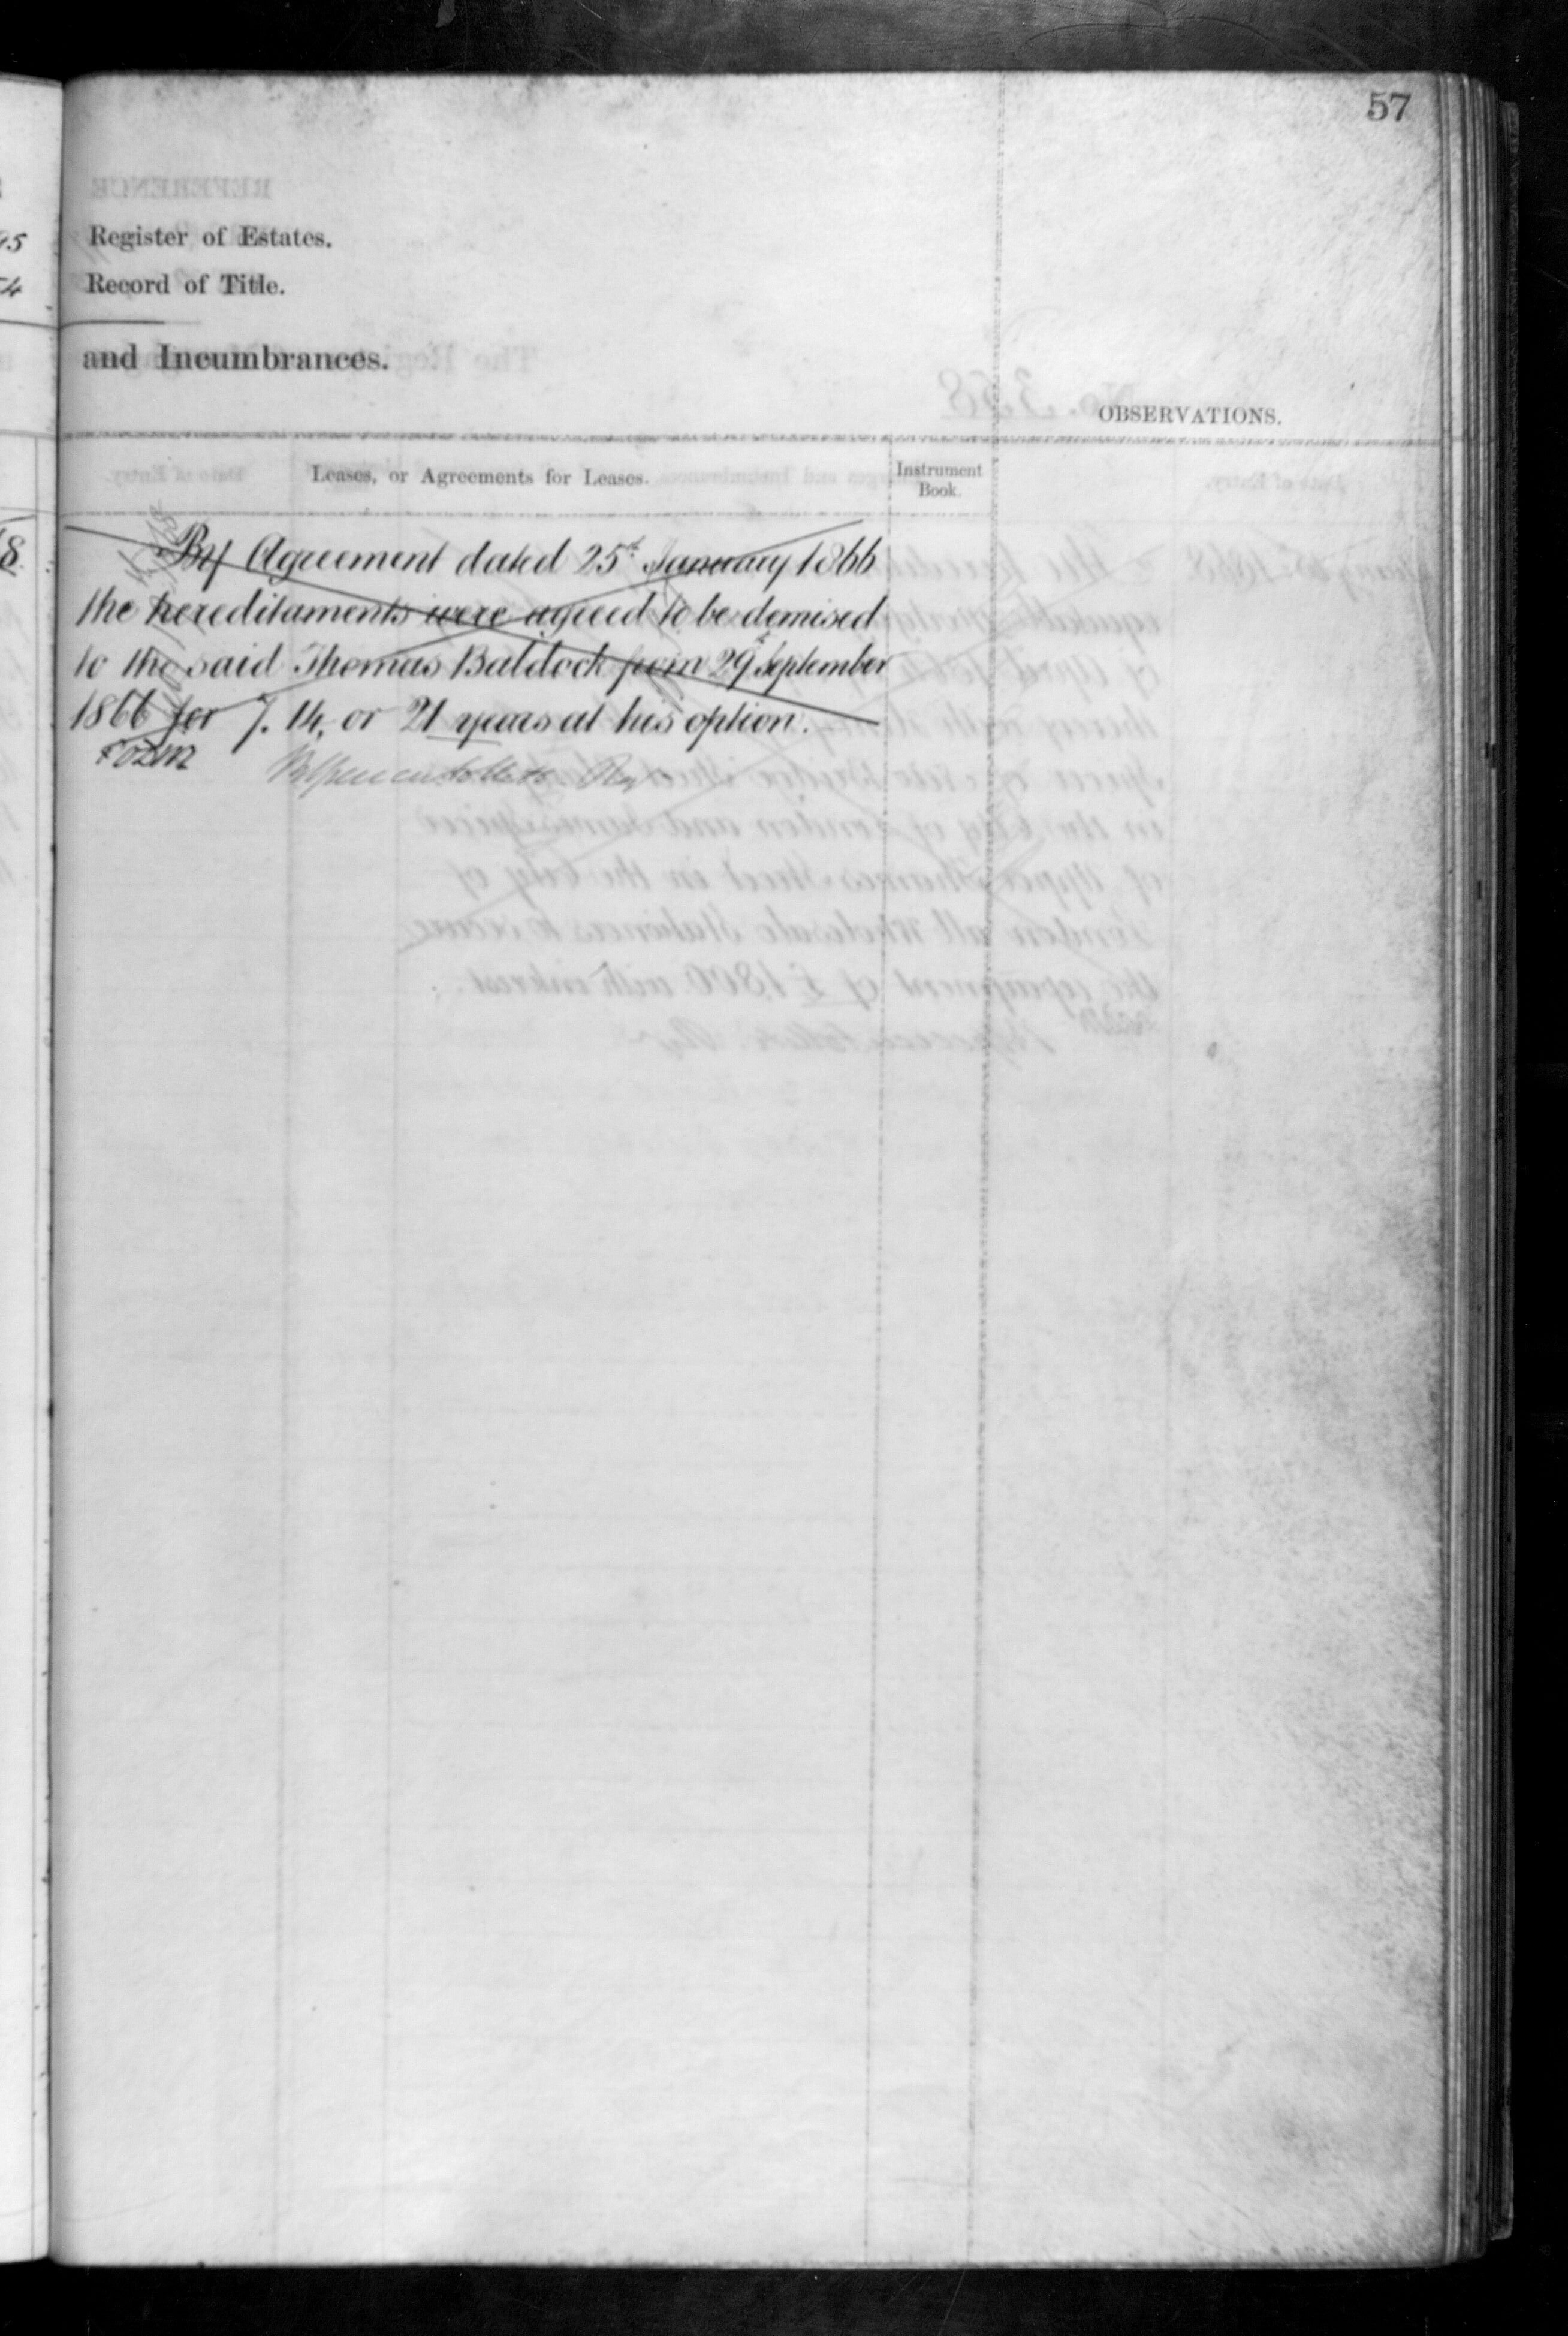 57
Register of Estates.
Record of Title.
and Incumbrances.
OBSERVATIONS.
Leases, or Agreements for Leases.
Instrument
Book.
By Agreement dated 25th January 1866
the hereditaments were agreed to be demised
to the said Thomas Baldock from 29th September
1866 for 7. 14, or 21 years at his option.